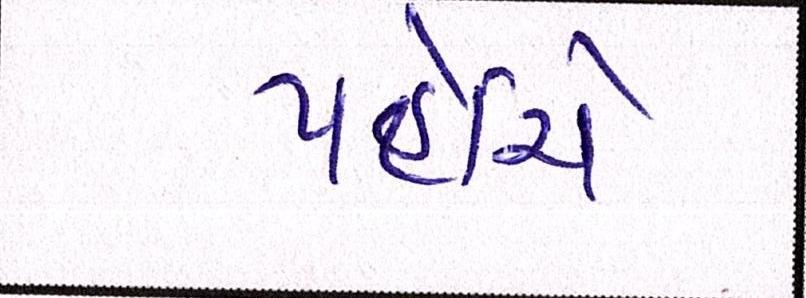 પહોચે